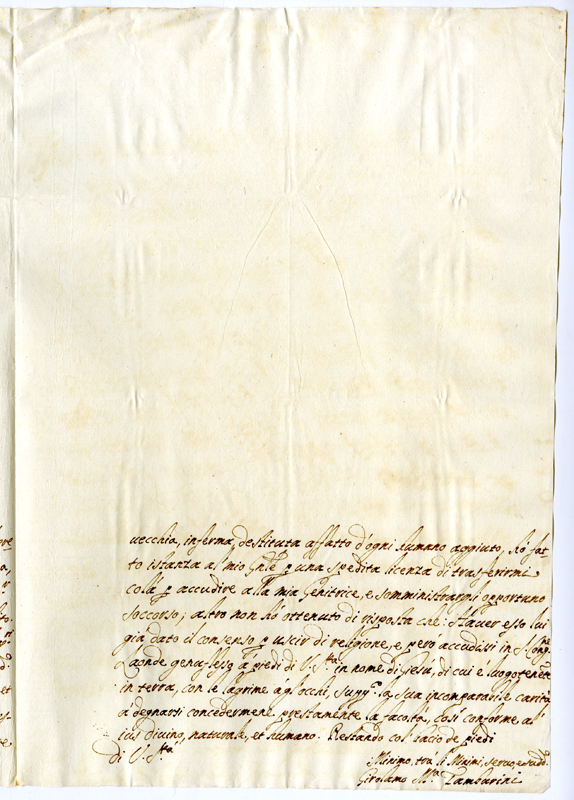 uecchia, inferma, destituta affatto d'ogni humano aggiuto, hò fat-
to istanza al mio Gnle p una spedita licenza di trasferirmi
colà p accudire alla mia Genitrice, e somministrargli opportuno
soccorso; altro non hò ottenuto di risposta che: Hauer esso lui
già dato il consenso p uscir di religione, e però accudissi in S. Congne
Laonde genuflesso a' piedi di V. Stà in nome di Giesù, di cui è luogotenente
in terra, con le lagrime a gl'occhi, suppco la sua incomparabile carità
a degnarsi concedermene prestamente la facoltà, così conforme al
ius diuino, naturale, et humano. Restando col bacio de piedi
di V. Stà
Minimo tra li Minimi, seruo, e sudd.
Girolamo Ma Tamburini